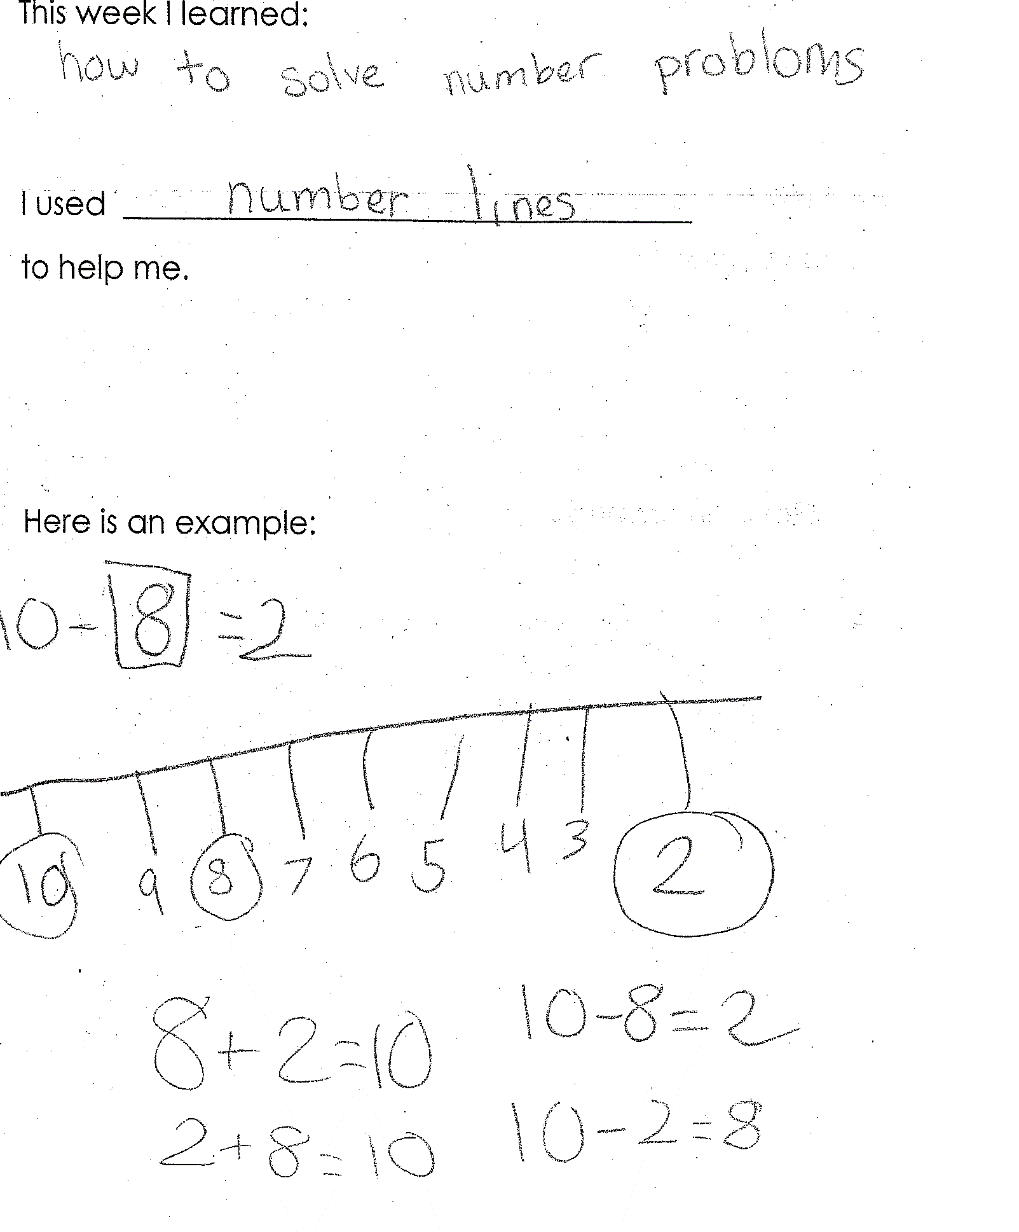 This week I learned:
how to solve number probloms
I used number lines
to help me.
Here is an example:
10 - 8 = 2
10 9 8 7 6 5 4 3 2
8 + 2 = 10 10 - 8 = 2
2 + 8 = 10 10 - 2 = 8